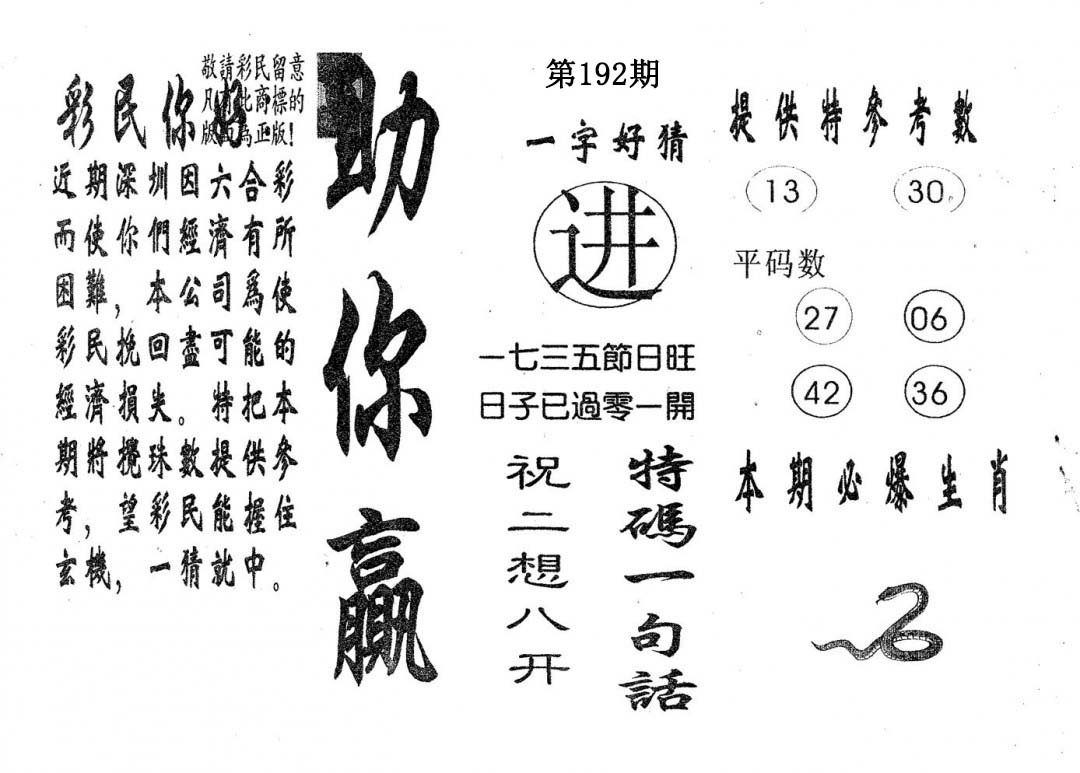 敬請彩民留意
凡有此商標的
版面為正版!
彩民你好
近期深圳因六合彩
而使你們經濟有所
困難，本公司爲使
彩民挽回盡可能的
經濟損失。特把本
期將攪珠數提供參
考，望彩民能握住
玄機，一猜就中。
助你贏
第192期
一字好猜
进
一七三五節日旺
日子已過零一開
特碼一句話
祝二想八开
提供特參考數
13 30
平码数
27 06
42 36
本期必爆生肖